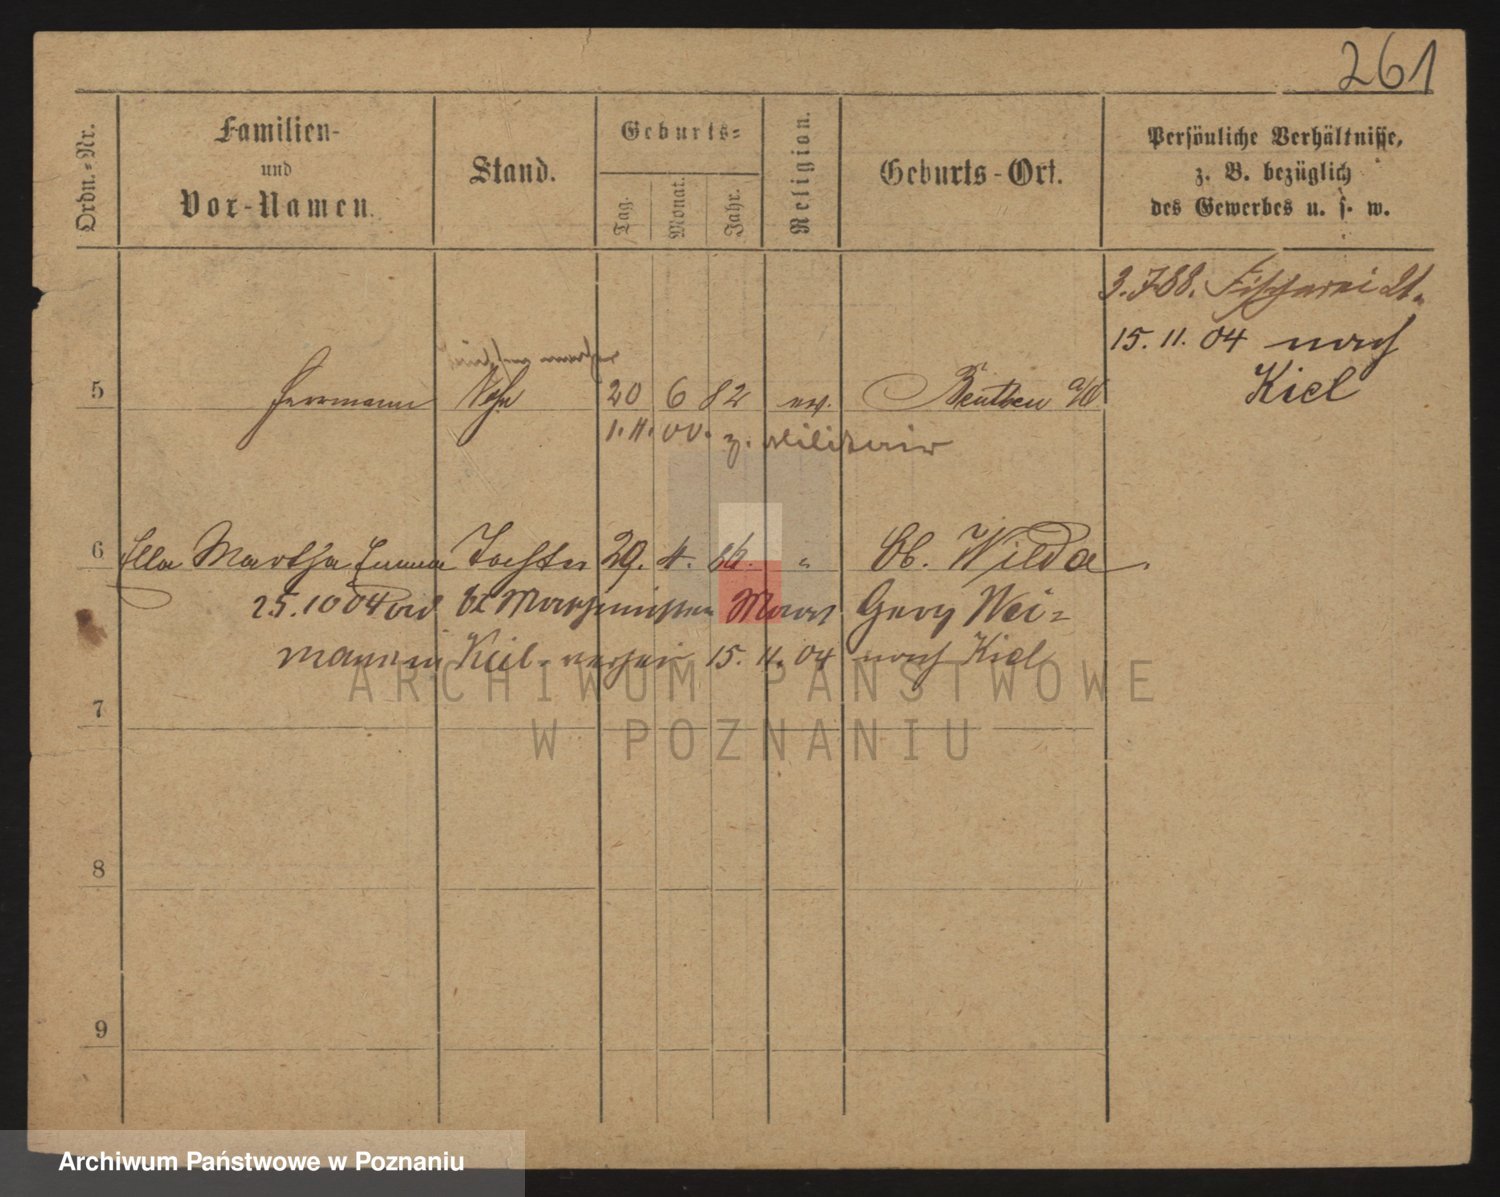 261
Ordn.-Nr.
Familien-
und
Vor-Namen.
Stand.
Geburts-
Tag.
Monat.
Jahr.
Religion.
Geburts-Ort.
Persönliche Verhältnisse,
z. B. bezüglich
des Gewerbes u. s. w.
3.7.88. Fischerei 21.
15. 11. 04 nach
Kiel
5 Herrmann Sohn 20 6 82 ev. Beuthen a/O
1.11.00. z. Militair
6 Ella Martha Emma Tochter 29. 4. 86. " Ob. Wilda
25.10 04 Maschinisten Georg Wei-
mann in Kiel 15. 11. 04 nach Kiel
7
8
9
ARCHIWUM PAŃSTWOWE
W POZNANIU
Archiwum Państwowe w Poznaniu